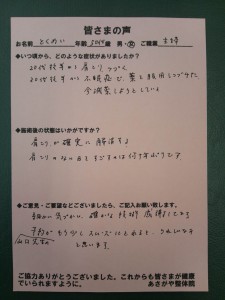 皆さまの声
お名前 とくめい 年齢 50代 歳 男・女 ご職業 主婦
●いつ頃から、どのような症状がありましたか？
20代後半から肩こり
20代後半から不眠症で薬を
今減薬しようとしている
●施術後の状態はいかがですか？
肩こりが確実に解消する
肩こりのない日をすごすのは何十年ぶり
●ご意見・ご要望などございましたら、ご記入お願い致します。
細かい気づかい、確かな技術、感謝してます
予約がもう少しスムーズにとれると、うれしいなと
思います。
ご協力ありがとうございました。これからも皆さまが健康
でいられますように。 あさがや整体院